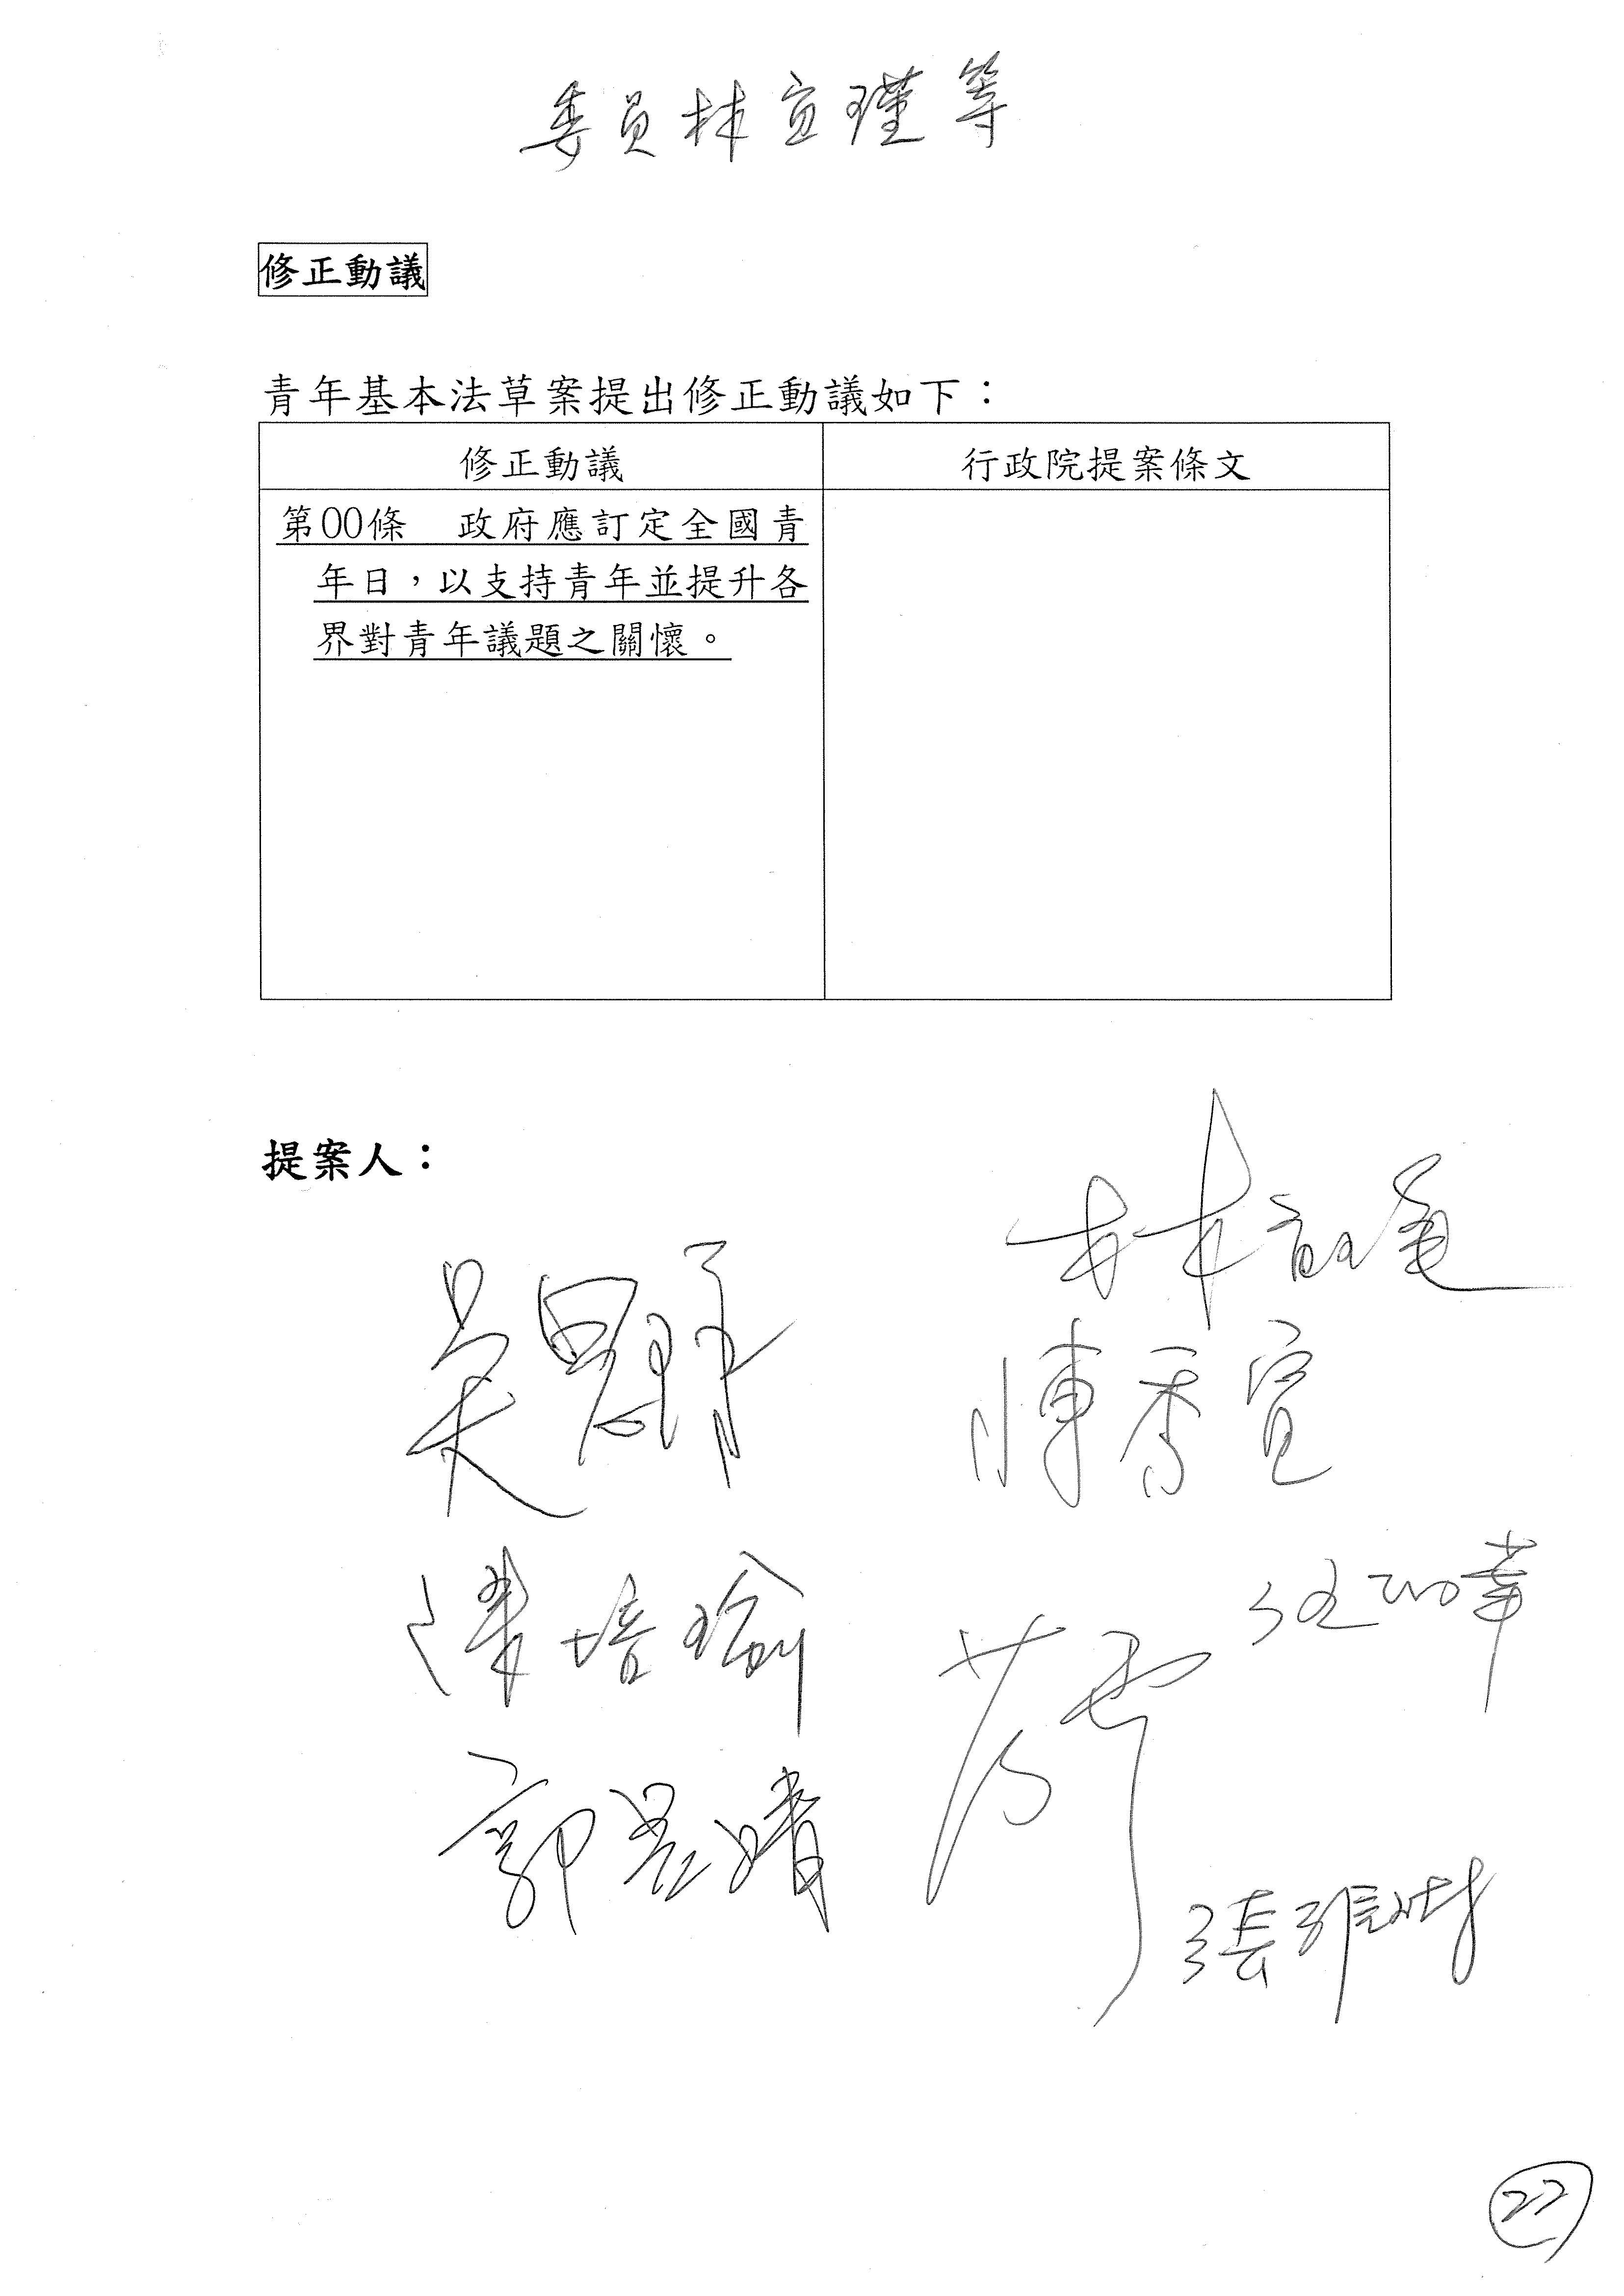 委員林宜瑾等
修正動議
青年基本法草案提出修正動議如下：
修正動議
行政院提案條文
第00條　政府應訂定全國青
年日，以支持青年並提升各
界對青年議題之關懷。
提案人：
吳思瑤
陳培瑜
郭昱晴
22